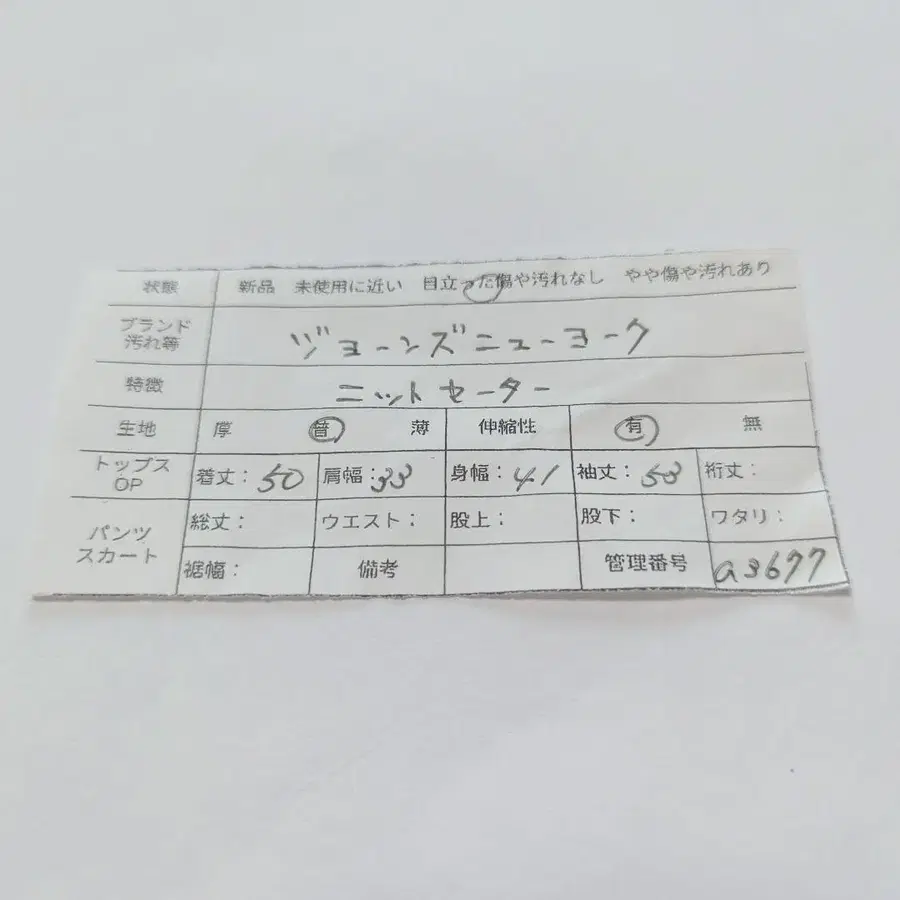 状態 新品 未使用に近い 目立った傷や汚れなし やや傷や汚れあり
ブランド
汚れ等 ジョーンズニューヨーク
特徴 ニットセーター
生地 厚 普 薄 伸縮性 有 無
トップス
OP 着丈：50 肩幅：33 身幅：41 袖丈：53 裄丈：
パンツ
スカート 総丈： ウエスト： 股上： 股下： ワタリ：
裾幅： 備考 管理番号 a3677